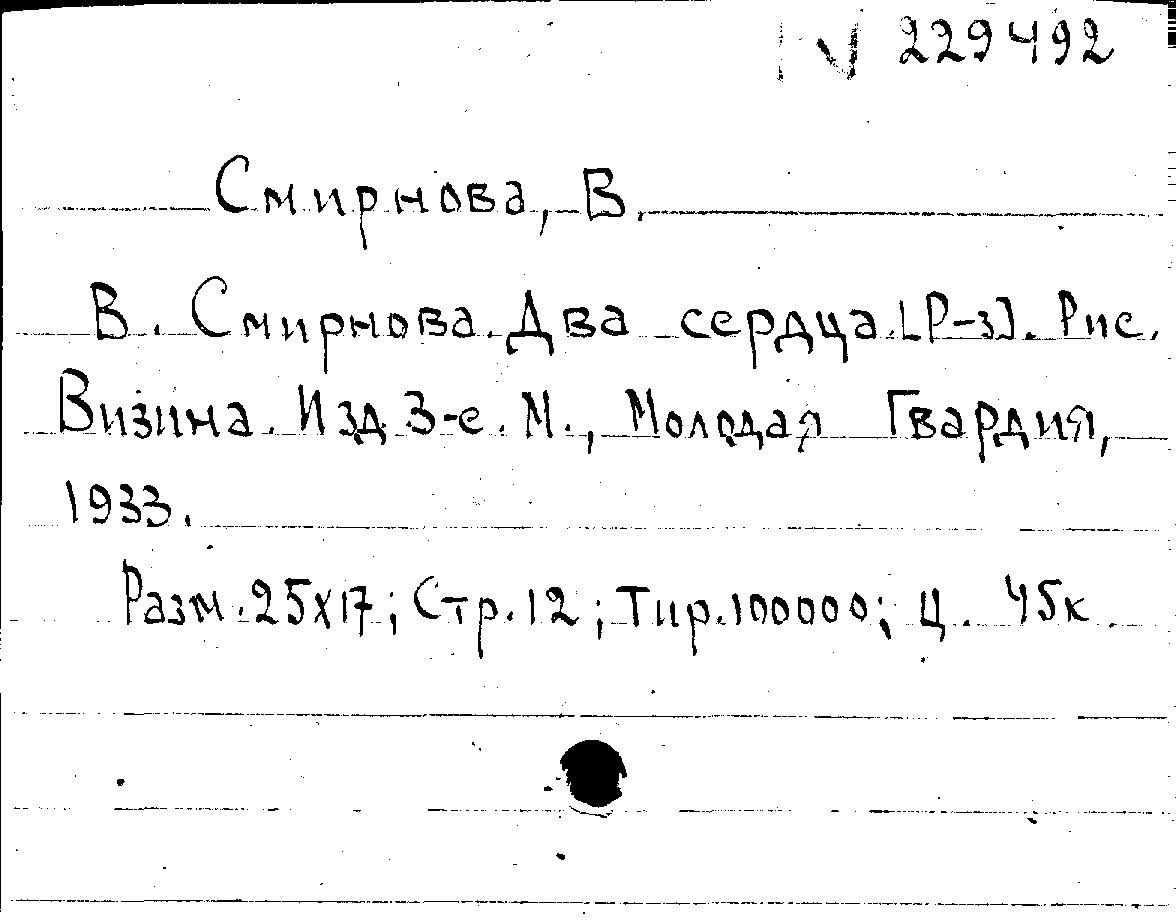 IV 229492
Смирнова, В.
В. Смирнова. Два сердца. [Р-з]. Рис.
Визина. Изд. 3-е. М., Молодая Гвардия,
1933.
Разм. 25х17; Стр. 12; Тир. 100000; Ц. 45к.